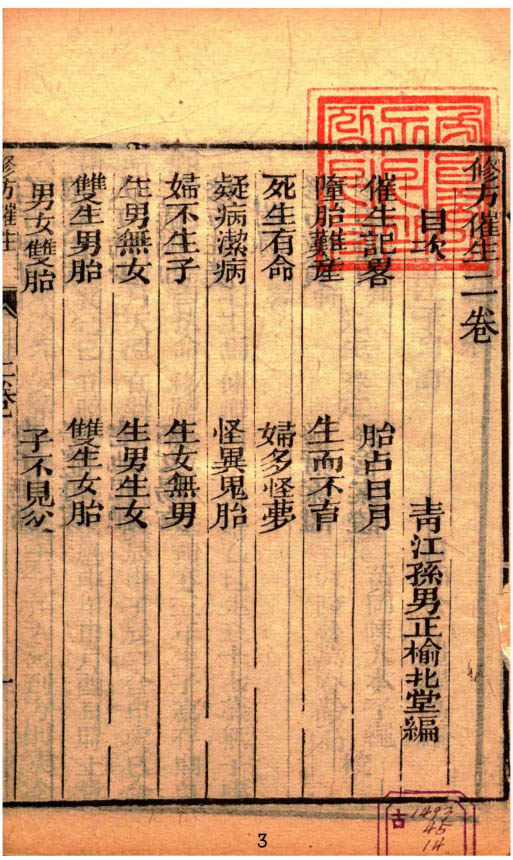 修方催生二卷
目次
青江孫男正榆北堂編
催生記畧 胎占日月
墮胎難產 生而不育
死生有命 婦多怪夢
疑病潔病 怪異鬼胎
婦不生子 生女無男
生男無女 生男生女
雙生男胎 雙生女胎
男女雙胎 子不見父
修方催生
二卷
一
古
1493
45
14
3